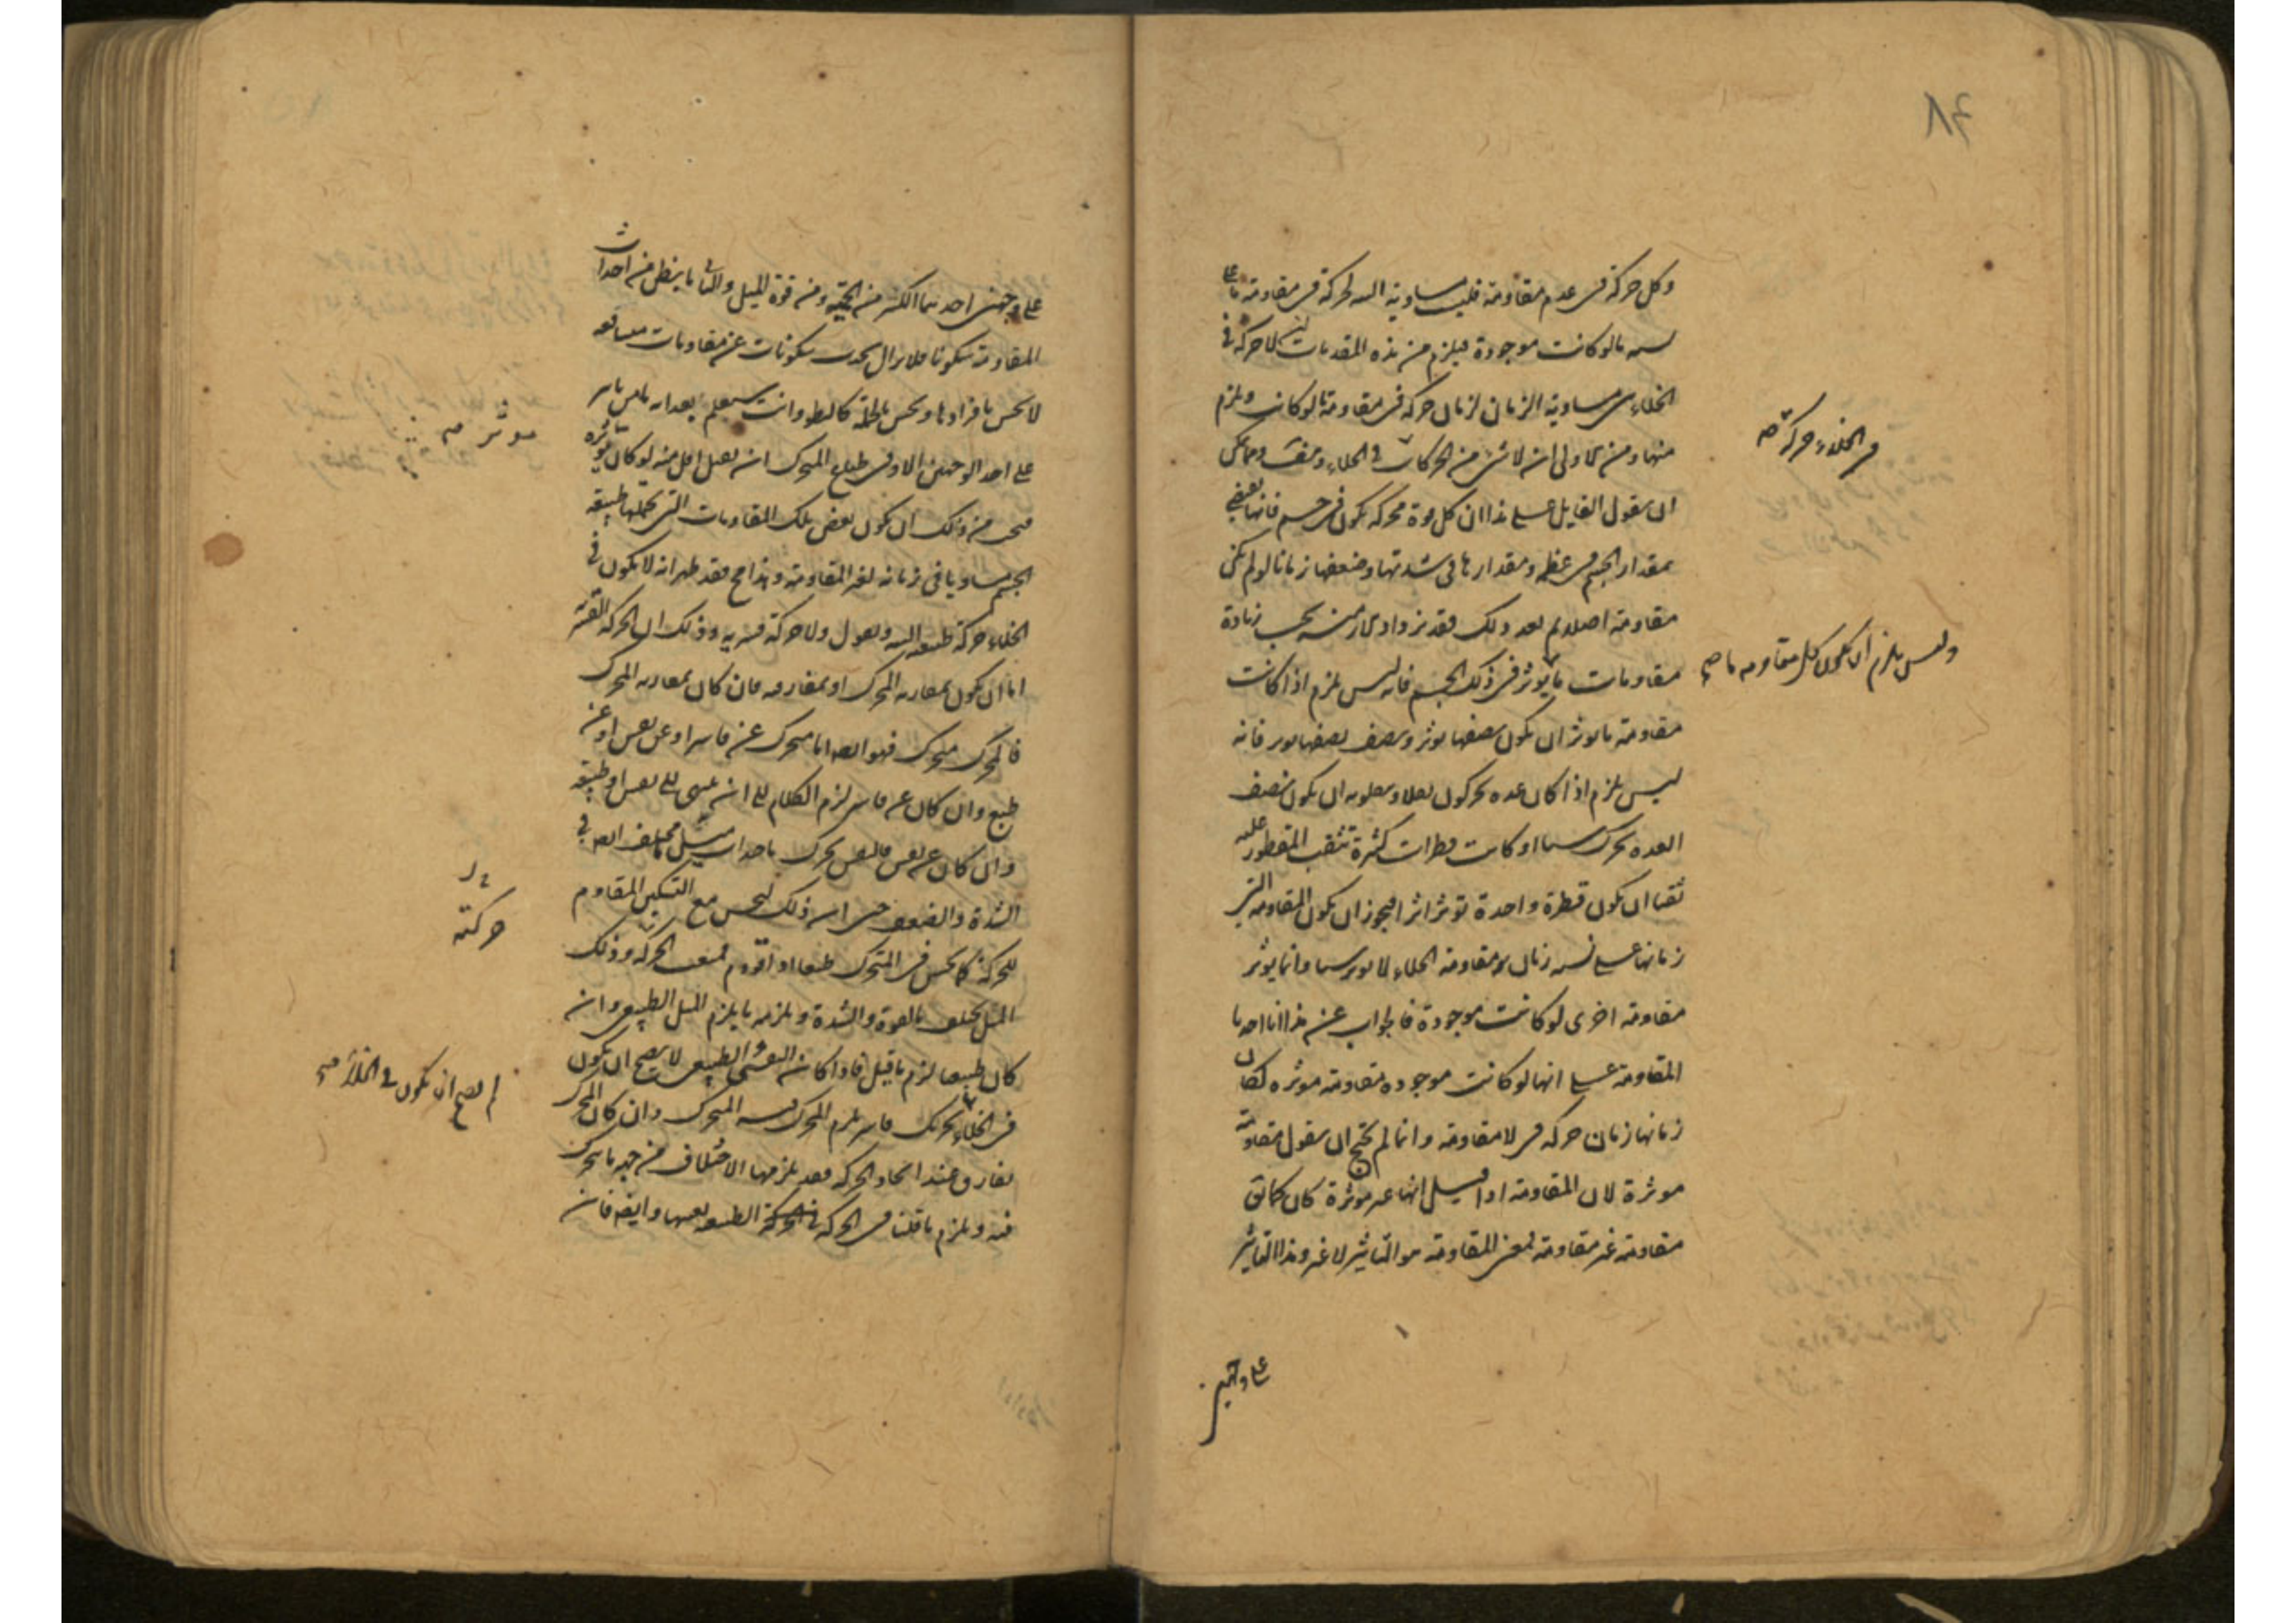 ٨٤
وكل حركة فى عدم مقاومة فليست مساوية البتة لحركة فى مقاومة ما على
نسبة ما لو كانت موجودة فيلزم من هذه المقدمات ان لا حركة فى
الخلاء مساوية الزمان لزمان حركة فى مقاومة ما لو كانت ويلزم
منها ومن الاولى انه لا شئ من الحركات فى الخلاء
ان يقول القايل على هذا ان كل قوة محركة تكون فى جسم فانها تقتضى
بمقدار الجسم فى عظمه ومقدارها فى شدتها وضعفها زمانا لو لم تكن
مقاومة اصلا ثم بعد ذلك فقد تزداد الازمنة بحسب زيادة
مقاومات ما تؤثر فى ذلك الجسم فانه ليس يلزم اذا كانت
مقاومة ما تؤثر ان يكون نصفها يؤثر ونصف نصفها يؤثر فانه
ليس يلزم اذا كان عدة يحركون ثقلا وينقلونه ان يكون نصف
العدة يحرك شيئا او كانت قطرات كثيرة تثقب المقطور عليه
ثقبا ان يكون قطرة واحدة تؤثر اثرا فيجوز ان يكون المقاومة التى
زمانها على نسبة زمان مقاومة الخلاء لا تؤثر شيئا وانما يؤثر
مقاومة اخرى لو كانت موجودة فالجواب عن هذا انا اخذنا
المقاومة على انها لو كانت موجودة مقاومة موثرة لكان
زمانها زمان حركة فى لا مقاومة وانما لم نحتج ان نقول مقاومة
موثرة لان المقاومة اذا قيل انها غير موثرة كان كما يق
مقاومة غير مقاومة فمعنى المقاومة هو التاثير لا غير وهذا التاثير
فى الخلاء حركة صح
وليس يلزم ان يكون كل مقاومة ما صح
على وجهين
على وجهين احدهما الكسر من الحمية ومن قوة الميل والثانى ما ينظن من احداث
المقاومة سكونا فلا يزال يحدث سكونات عن مقاومات متتابعة
لا تحس بافرادها وتحس بالجملة كالبطو وانت ستعلم بعد انه ما من تاثير
على احد الوجهين الا وفى طباع المتحرك ان يقبل اقل منه لو كان مؤثره
فيجب من ذلك ان يكون بعض تلك المقاومات التى تحملها طبيعة
الجسم مساويا فى زمانه لغير المقاومة وهذا مح فقد ظهر انه لا يكون فى
الخلاء حركة طبيعية البتة ونقول ولا حركة قسرية وذلك ان الحركة القسرية
اما ان تكون بمقاربة المحرك او بمفارقه فان كان بمقاربة المحرك
فالمحرك متحرك فهو ايضا اما متحرك عن قاسر او عن نفس او عن
طبع وان كان عن قاسر لزم الكلام الى ان ينتهى الى نفس او طبيعة
وان كان عن نفس فالنفس تحرك باحداث ميل مختلف ايضا فى
الشدة والضعف حتى ان ذلك ليحس مع التسكين المقاوم
للحركة كما يحس فى المتحرك طبعا اذا قووم فمنعت الحركة وذلك
الميل يختلف بالقوة والشدة ويلزمه ما يلزم الميل الطبيعى وان
كان طبيعيا لزم ما قيل فاذا كان النفسى والطبيعى لا يصح ان يكون
فى الخلاء تحريك قاسر يلزم المحرك فيه المتحرك وان كان المحرك
يفارق عند اتحاد الحركة فقد يلزمها الاختلاف من جهة ما يتحرك
فيه ويلزم ما قلنا فى الحركة الطبيعية بعينها وايضا فان
موثر صح
حركته
لم يصح ان يكون فى الخلاء صح